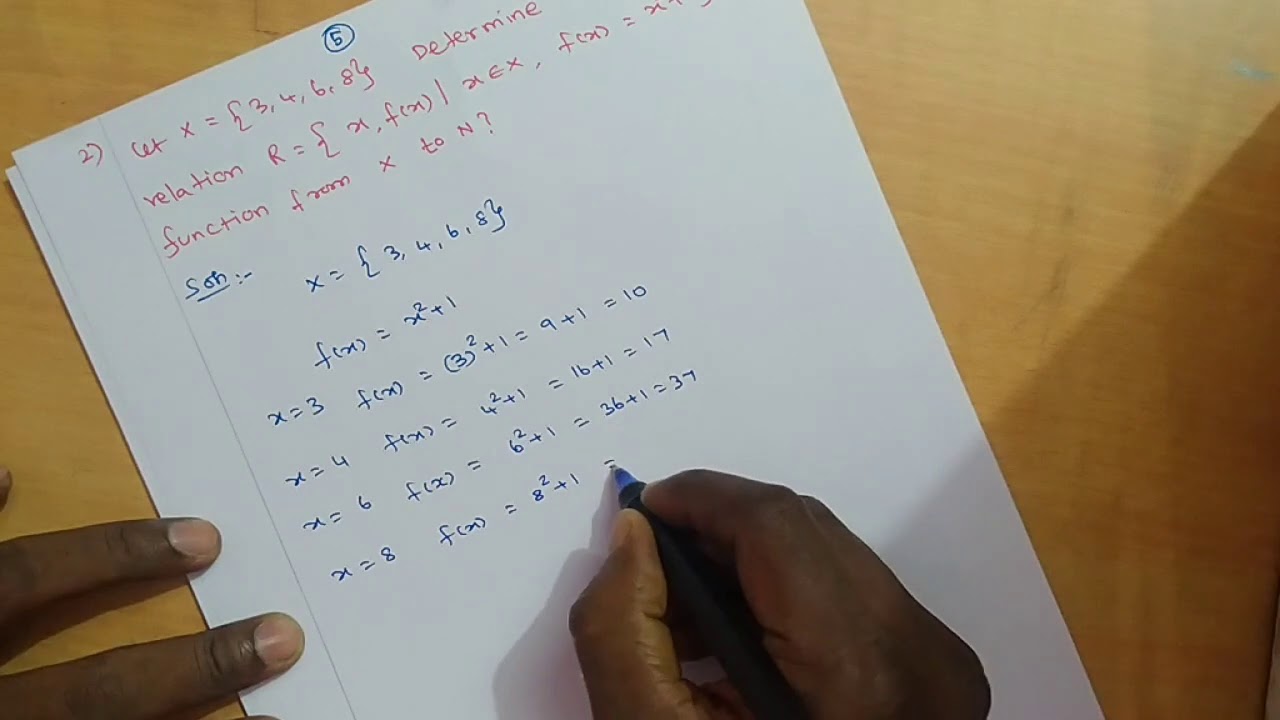 5
2) Let X = {3, 4, 6, 8} Determine
relation R = { x, f(x) | x ∈ X, f(x) =
function from X to N?
Soln :-
X = { 3, 4, 6, 8}
f(x) = x²+1
x = 3 f(x) = (3)²+1 = 9+1 = 10
x = 4 f(x) = 4²+1 = 16+1 = 17
x = 6 f(x) = 6²+1 = 36+1 = 37
x = 8 f(x) = 8²+1 =